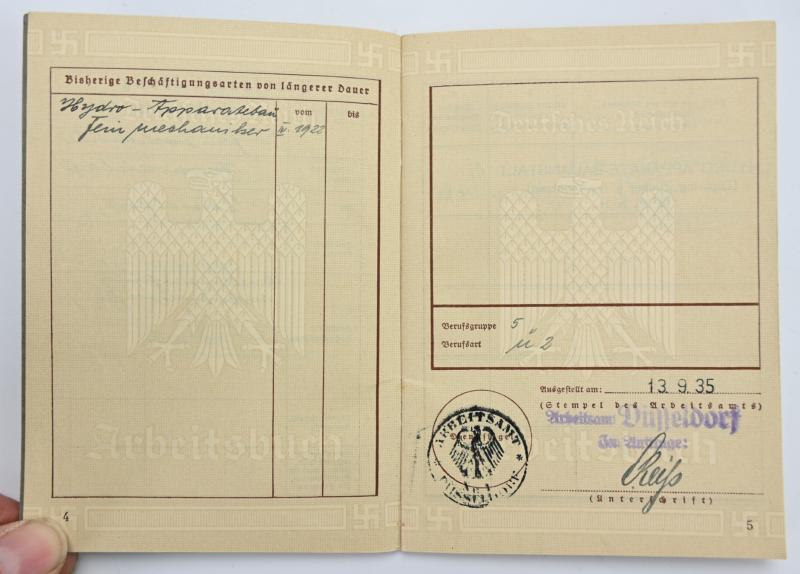 Bisherige Beschäftigungsarten von längerer Dauer
vom bis
Hydro-Apparatebau
Feinmechaniker IV. 1922
Arbeitsbuch
4
Deutsches Reich
Berufsgruppe 5
Berufsart ü 2
Ausgestellt am: 13.9.35
(Stempel des Arbeitsamts)
Arbeitsamt Düsseldorf
Im Auftrage:
ARBEITSAMT
DÜSSELDORF
(Unterschrift)
5